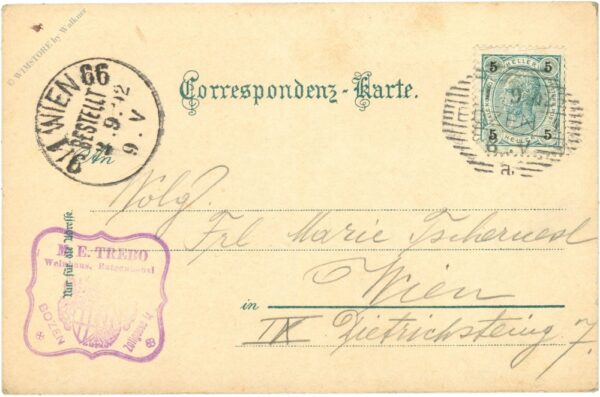 © WIMSTORE by Walkner
9/1 WIEN 66
BESTELLT
9.02
9.V
Correspondenz-Karte.
HELLER
5 5
5 5
An
Wolg.
Frl Marie Tschernesl
in Wien
IX Dietrichsteing 7.
Nur für die Adresse.
E. TREBO
BOZEN